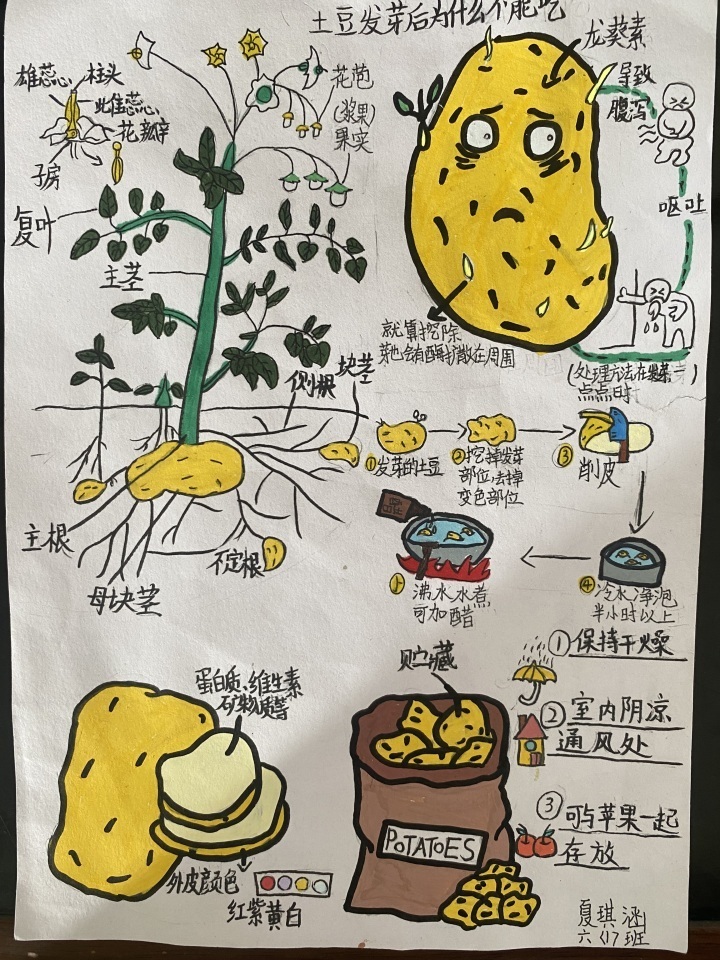 土豆发芽后为什么不能吃
雄蕊
柱头
雌蕊
花瓣
子房
花苞
(浆果)
果实
复叶
主茎
侧根
块茎
主根
母块茎
不定根
龙葵素
导致
腹泻
呕吐
就算挖除
芽也会有酶扩散在周围
(处理方法在
点点时
①发芽的土豆
②挖掉发芽
部位,去掉
变色部位
③
削皮
④冷水净泡
半小时以上
沸水水煮
可加醋
蛋白质、维生素
矿物质等
外皮颜色
红紫黄白
贮藏
POTATOES
①保持干燥
②室内阴凉
通风处
③可与苹果一起
存放
夏琪涵
六(17班